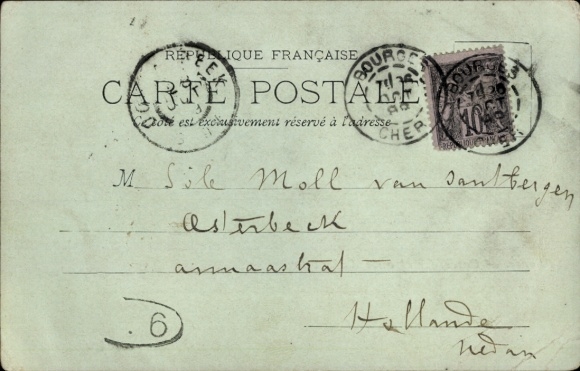 RÉPUBLIQUE FRANÇAISE
CARTE POSTALE
Ce côté est exclusivement réservé à l'adresse
BOURGES
CHER
BOURGES
10
M
Moll van Santbergen
Osterbeck
annaastrat
Hollande
6